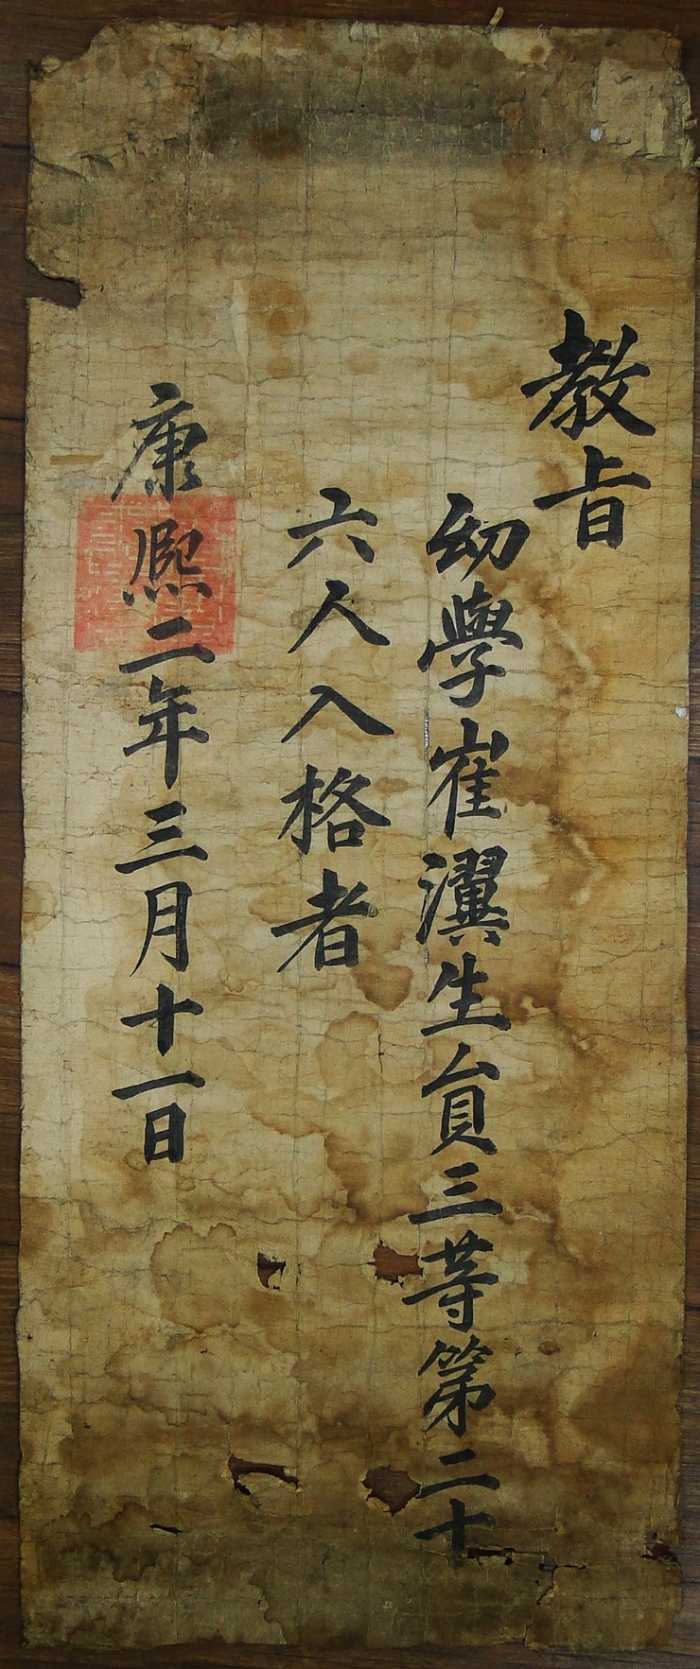 教旨
幼學崔瀷生員三等第二十
六人入格者
康熙二年三月十一日